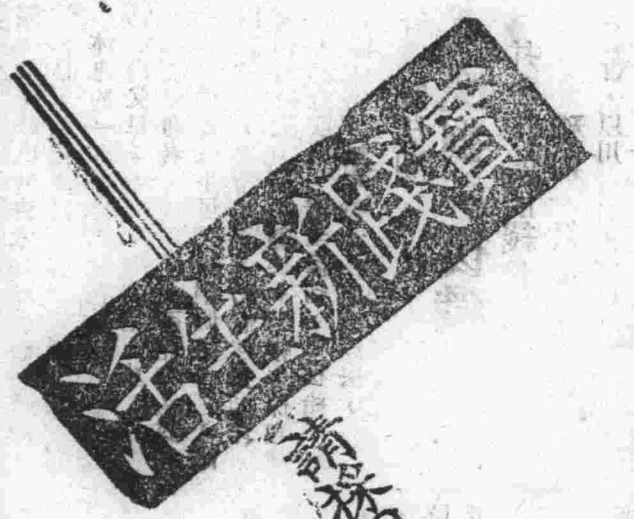 實踐新生活
請